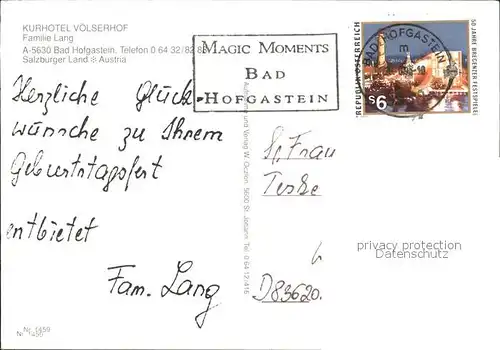 KURHOTEL VÖLSERHOF
Familie Lang
A-5630 Bad Hofgastein, Telefon 0 64 32/82 88
Salzburger Land ⁂ Austria
MAGIC MOMENTS
BAD
HOFGASTEIN
BAD HOFGASTEIN
m
REPUBLIK ÖSTERREICH
50 JAHRE BREGENZER FESTSPIELE
S6
Herzliche Glück-
wünsche zu Ihrem
Geburtstagsfest
entbietet
Fam. Lang
Frau
Teske
D 83620.
Verlag W.
5600 St. Johann, Tel. 0 64 12/416
privacy protection
Datenschutz
Nr. 1459